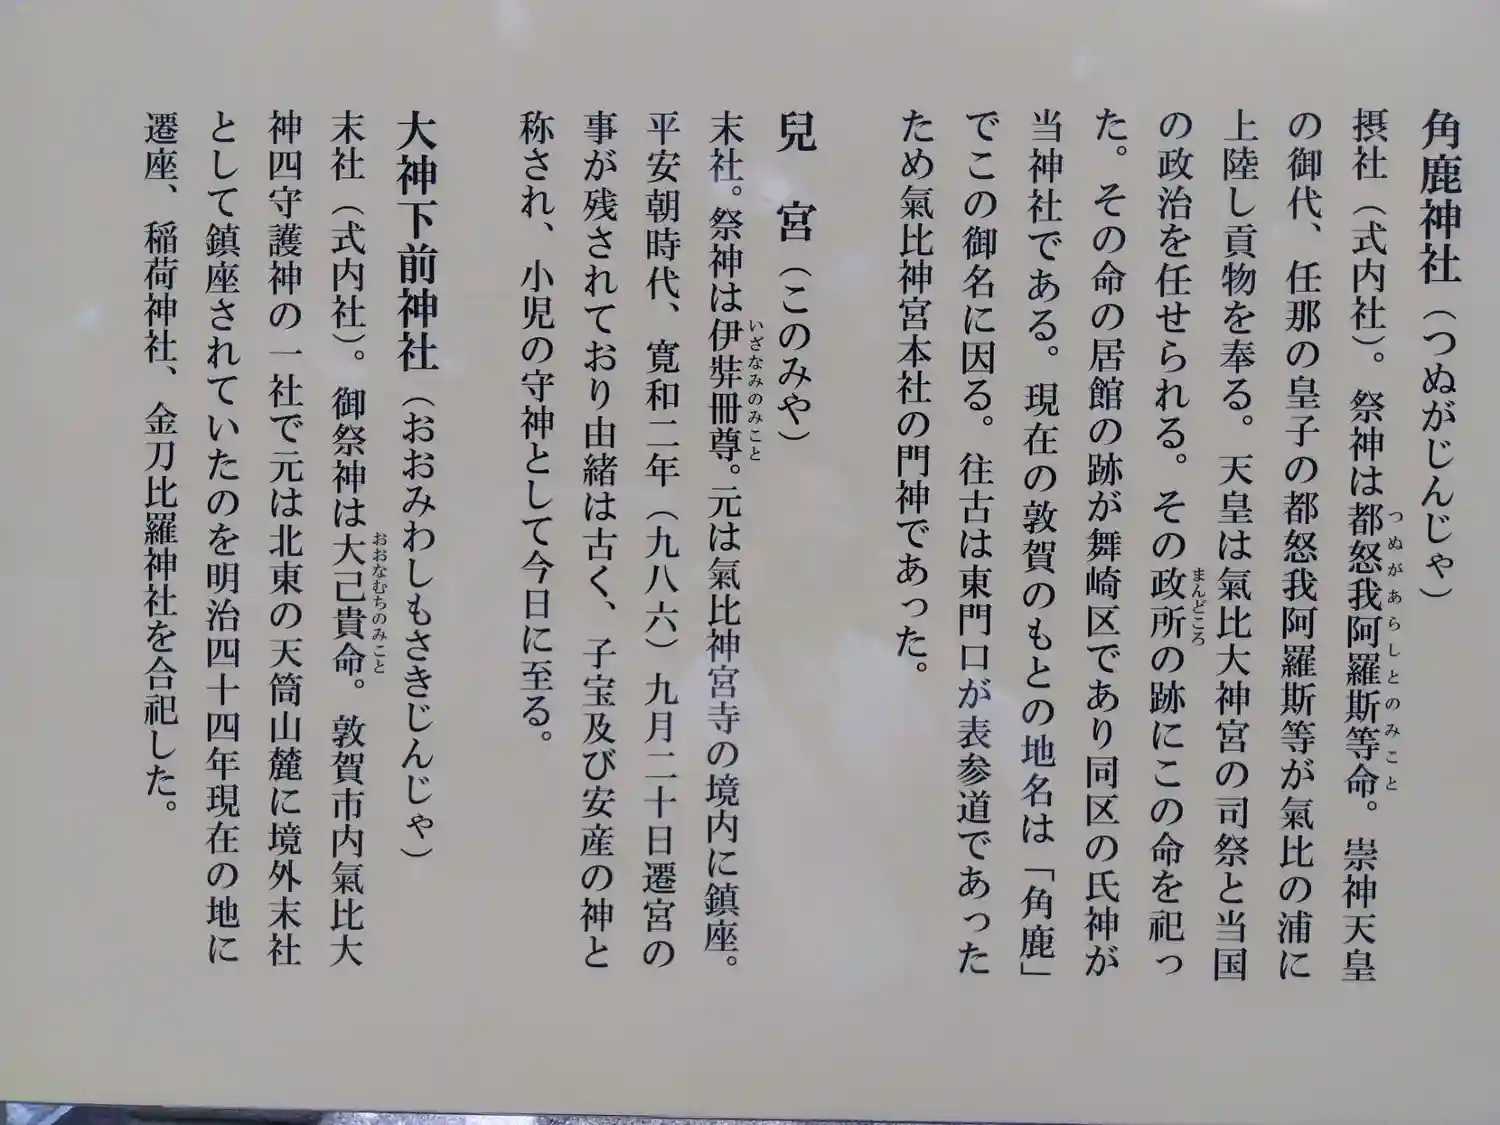 角鹿神社（つぬがじんじゃ）
摂社（式内社）。祭神は都怒我阿羅斯等命。崇神天皇
つぬがあらしとのみこと
の御代、任那の皇子の都怒我阿羅斯等が氣比の浦に
上陸し貢物を奉る。天皇は氣比大神宮の司祭と当国
の政治を任せられる。その政所の跡にこの命を祀っ
まんどころ
た。その命の居館の跡が舞崎区であり同区の氏神が
当神社である。現在の敦賀のもとの地名は「角鹿」
でこの御名に因る。往古は東門口が表参道であった
ため氣比神宮本社の門神であった。
兒　宮（このみや）
末社。祭神は伊弉冊尊。元は氣比神宮寺の境内に鎮座。
いざなみのみこと
平安朝時代、寛和二年（九八六）九月二十日遷宮の
事が残されており由緒は古く、子宝及び安産の神と
称され、小児の守神として今日に至る。
大神下前神社（おおみわしもさきじんじゃ）
末社（式内社）。御祭神は大己貴命。敦賀市内氣比大
おおなむちのみこと
神四守護神の一社で元は北東の天筒山麓に境外末社
として鎮座されていたのを明治四十四年現在の地に
遷座、稲荷神社、金刀比羅神社を合祀した。